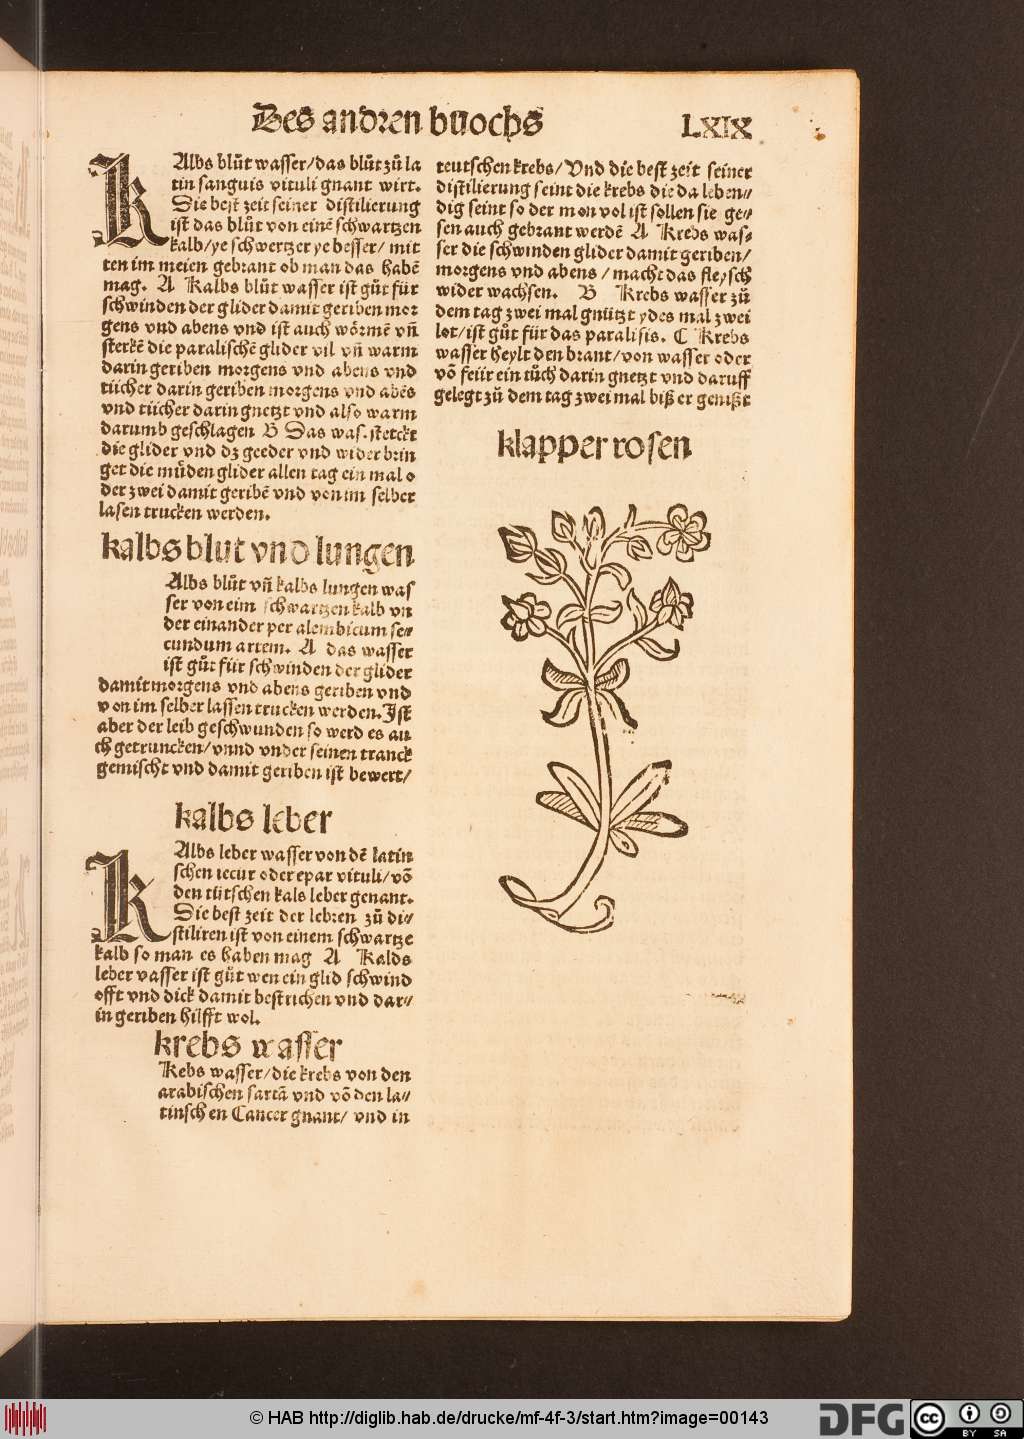 Des andren buochs
LXIX
KAlbs blůt wasser/das blůt zů la
tin sanguis vituli gnant wirt.
Die best zeit seiner distilierung
ist das blůt von einē schwartzen
kalb/ye schwertzer ye besser/ mit
ten im meien gebrant ob man das habē
mag. A Kalbs blůt wasser ist gůt für
schwinden der glider damit geriben mor
gens vnd abens vnd ist auch wörmē vñ
sterkē die paralischē glider vil vñ warm
darin geriben morgens vnd abens vnd
tücher darin geriben morgens vnd abēs
vnd tücher darin gnetzt vnd also warm
darumb geschlagen B Das was. stetckt
die glider vnd dz geeder vnd wider brin
get die müden glider allen tag ein mal o
der zwei damit geribē vnd von im selber
lasen trucken werden.
kalbs blut vnd lungen
Albs blůt vñ kalbs lungen was
ser von eim schwartzen kalb vn
der einander per alembicum se⸗
cundum artem. A das wasser
ist gůt für schwinden der glider
damit morgens vnd abens geriben vnd
von im selber lassen trucken werden. Ist
aber der leib geschwunden so werd es au
ch getruncken/ vnnd vnder seinen tranck
gemischt vnd damit geriben ist bewert/
kalbs leber
KAlbs leber wasser von dē latin
schen iecur oder epar vituli/ vō
den tütschen kals leber genant.
Die best zeit der lebren zů di⸗
stiliren ist von einem schwartze
kalb so man es haben mag A Kalds
leber vasser ist gůt wen ein glid schwind
offt vnd dick damit bestrichen vnd dar⸗
in geriben hilfft wol.
krebs wasser
Kebs wasser/die krebs von den
arabischen sartā vnd vō den la⸗
tinschen Cancer gnant/ vnd in
teutschen krebs/ Vnd die best zeit seiner
distilierung seint die krebs die da leben⸗
dig seint so der mon vol ist sollen sie ge⸗
sen auch gebrant werdē A Krebs was⸗
ser die schwinden glider damit geriben/
morgens vnd abens / macht das fleysch
wider wachsen. B Krebs wasser zů
dem tag zwei mal gnützt ydes mal zwei
lot/ist gůt für das paralisis. C Krebs
wasser heylt den brant/von wasser oder
vō feür ein tůch darin gnetzt vnd daruff
gelegt zů dem tag zwei mal biß er genißt
klapper rosen
© HAB http://diglib.hab.de/drucke/mf-4f-3/start.htm?image=00143
DFG
cc
BY SA